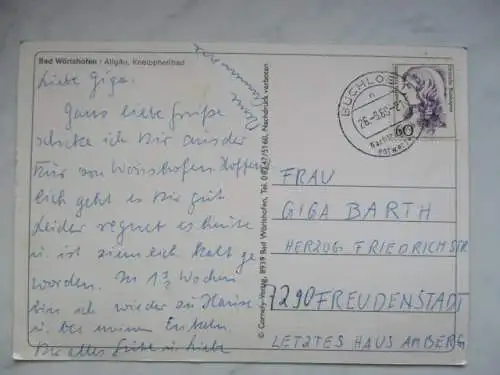 Bad Wörishofen · Allgäu, Kneippheilbad
Liebe Giga.
Ganz liebe Grüße
schicke ich Dir aus der
Kur von Wörishofen. Hoffent
lich geht es Dir gut
Leider regnet es heute
u. ist ziemlich kalt ge
worden. In 1½ Wochen
bin ich wieder zu Hause
u. bei meinen Enkeln.
Dir alles Gute u. Liebe
Deine
© Cornely-Verlag, 8939 Bad Wörishofen, Tel. 08247/5160, Nachdruck verboten
BUCHLOE
60
FRAU
GIGA BARTH
HERZOG FRIEDRICHSTR
7290 FREUDENSTADT
LETZTES HAUS AM BERG